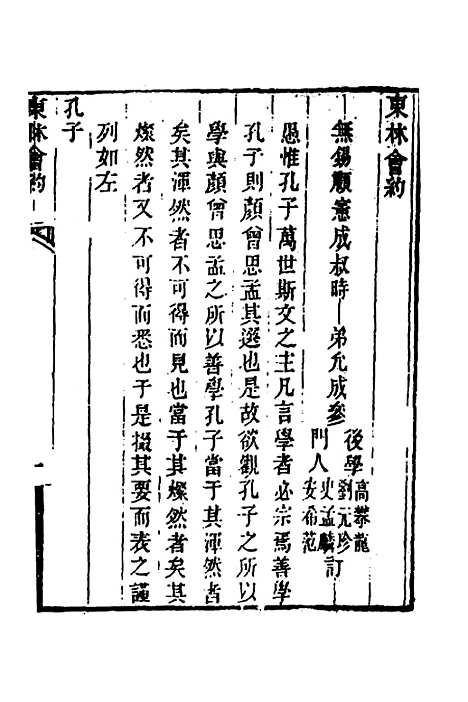 東林會約
無錫顧憲成叔時 弟允成參
後學 高攀龍
劉元珍 訂
門人 史孟麟
安希范
愚惟孔子萬世斯文之主凡言學者必宗焉善學
孔子則顏曾思孟其選也是故欲觀孔子之所以
學與顏曾思孟之所以善學孔子當于其渾然者
矣其渾然者不可得而見也當于其燦然者矣其
燦然者又不可得而悉也于是掇其要而表之謹
列如左
孔子
東林會約
一